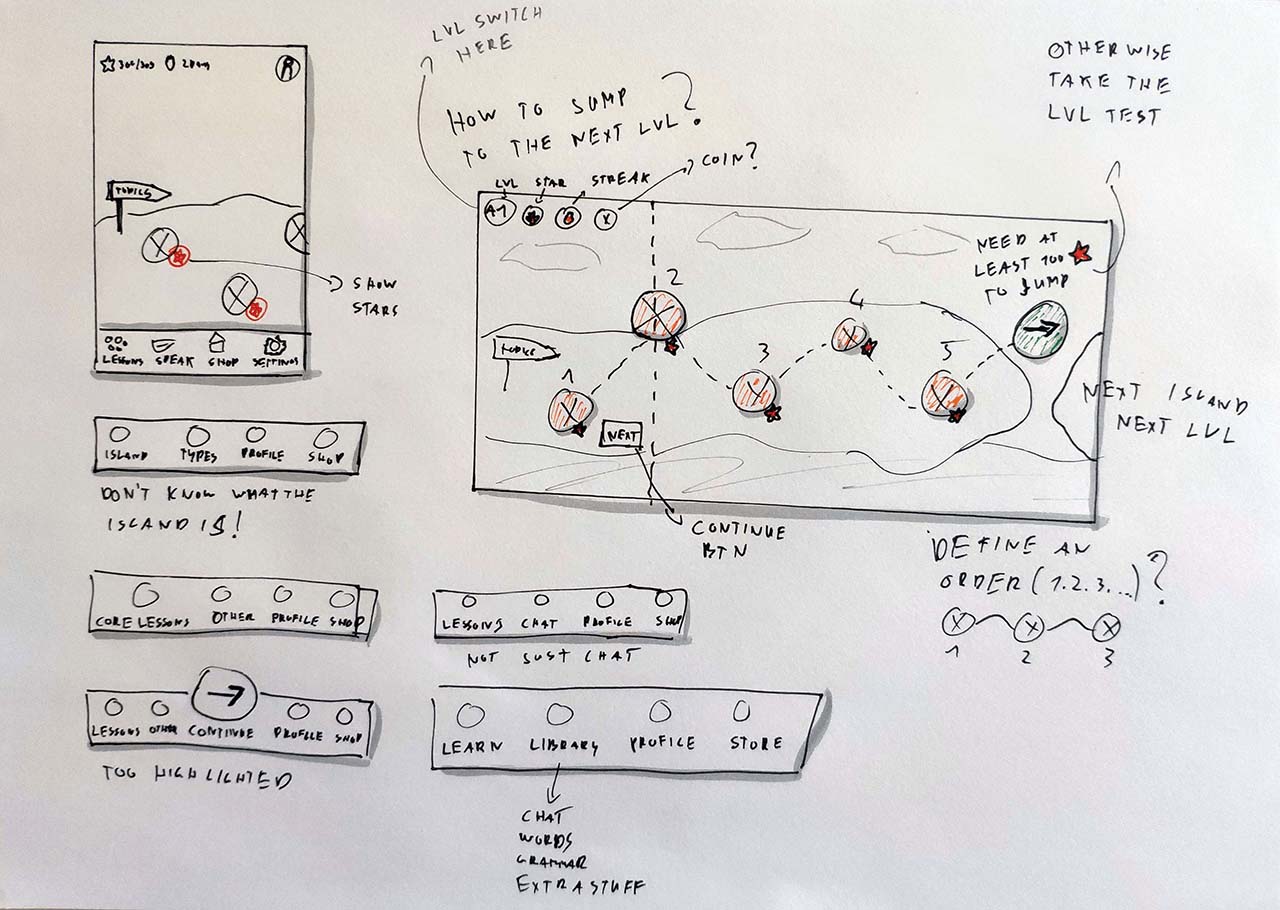 LVL SWITCH
HERE
OTHERWISE
TAKE THE
LVL TEST
300/303
HOW TO SUMP
TO THE NEXT LVL?
COIN?
LVL STAR STREAK
A1 X
TOPICS
SHOW
STARS
LESSONS SPEAK SHOP SETTINGS
NEED AT
LEAST 100
TO JUMP
2
4
3
5
1
TOPICS
NEXT
NEXT ISLAND
NEXT LVL
CONTINUE
BTN
ISLAND TYPES PROFILE SHOP
DON'T KNOW WHAT THE
ISLAND IS!
DEFINE AN
ORDER (1.2.3...)?
1 2 3
CORE LESSONS OTHER PROFILE SHOP
LESSONS CHAT PROFILE SHOP
NOT SUST CHAT
LESSONS OTHER CONTINUE PROFILE SHOP
TOO HIGHLIGHTED
LEARN LIBRARY PROFILE STORE
CHAT
WORDS
GRAMMAR
EXTRA STUFF